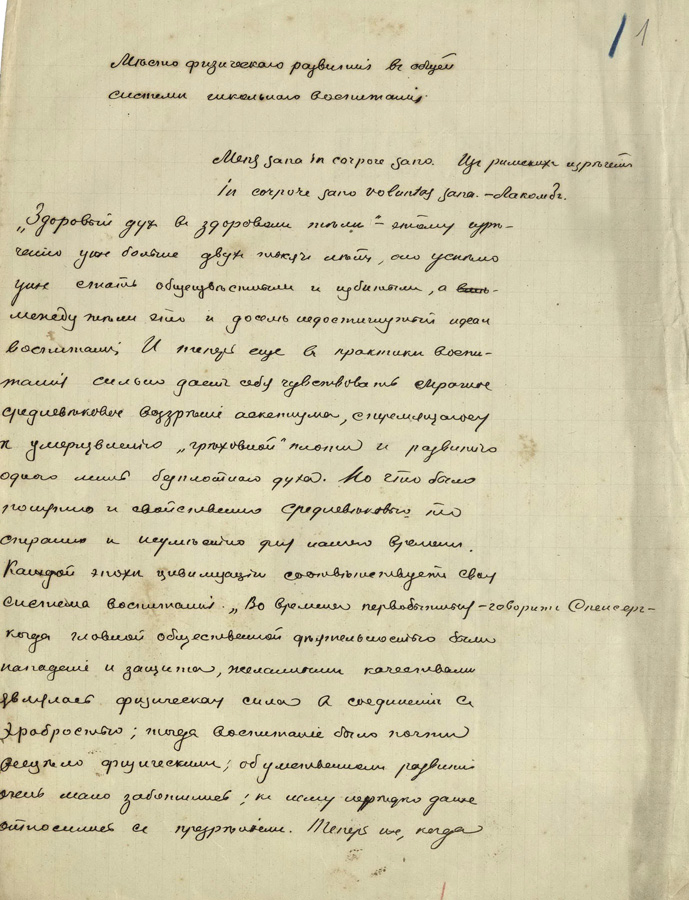 1
Мѣсто физическаго развитія въ общей
системѣ школьнаго воспитанія.
Mens sana in corpore sano. Изъ римскихъ изрѣченій
In corpore sano voluntas sana. – Лакомбъ.
„Здоровый духъ въ здоровомъ тѣлѣ" – этому изрѣ-
ченію уже больше двухъ тысячъ лѣтъ, оно успѣло
уже стать общеизвѣстнымъ и избитымъ, а
между тѣмъ это и доселѣ недостижимый идеалъ
воспитанія. И теперь еще въ практикѣ воспи-
танія сильно даетъ себя чувствовать мрачное
средневѣковое воззрѣніе аскетизма, стремящагося
къ умерщвленію „грѣховной" плоти и развитію
одного лишь безплотнаго духа. Но что было
понятно и свойственно средневѣковью, то
странно и неумѣстно для нашего времени.
Каждой эпохѣ цивилизаціи соотвѣтствуетъ своя
система воспитанія. „Во времена первобытныя – говоритъ Спенсеръ –
когда главной общественной дѣятельностью были
нападеніе и защита, желаннымъ качествомъ
являлась физическая сила въ соединеніи съ
храбростью; тогда воспитаніе было почти
всецѣло физическимъ; объ умственномъ развитіи
очень мало заботились; къ нему нерѣдко даже
относились съ презрѣніемъ. Теперь же, когда